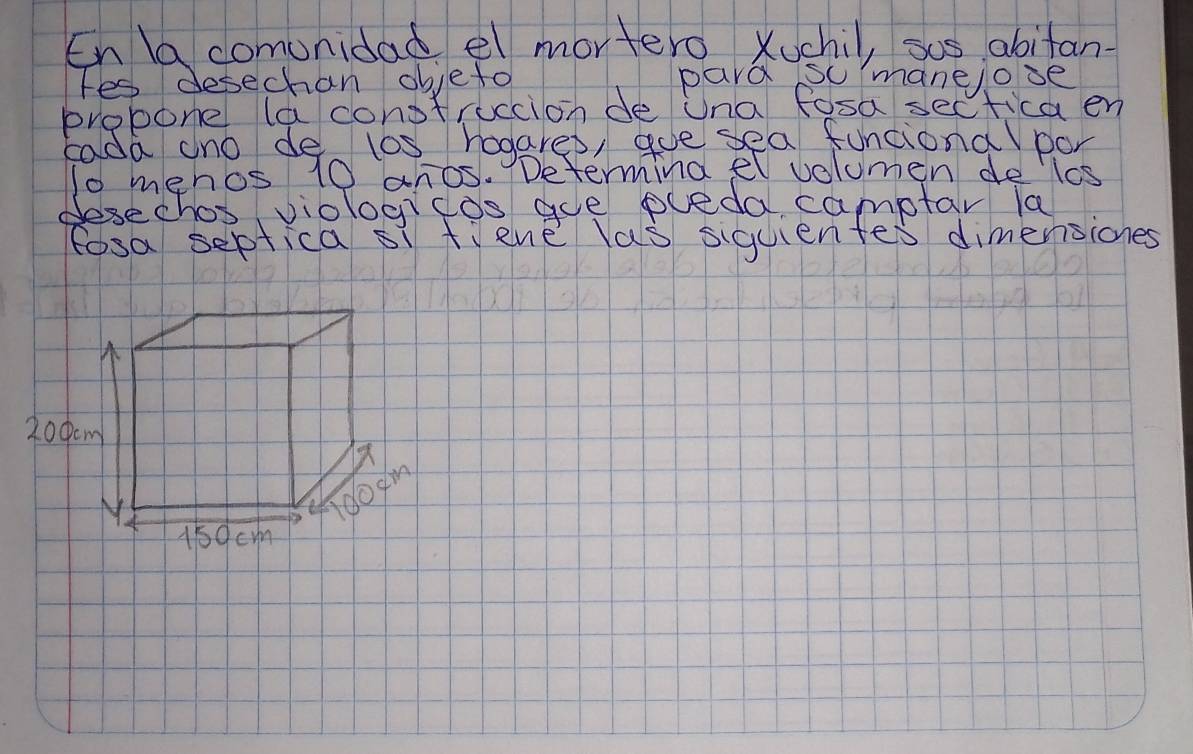 En la comunidad el mortero Xuchil, sus abitan-
tes desechan objeto para su manejo se
propone la construccion de una fosa sectica en
cada uno de los hogares, que sea funcional por
lo menos 10 años. Determina el volumen de los
desechos viologicos que pueda camptar la
fosa septica si tiene las siguientes dimensiones
200cm
100cm
150cm